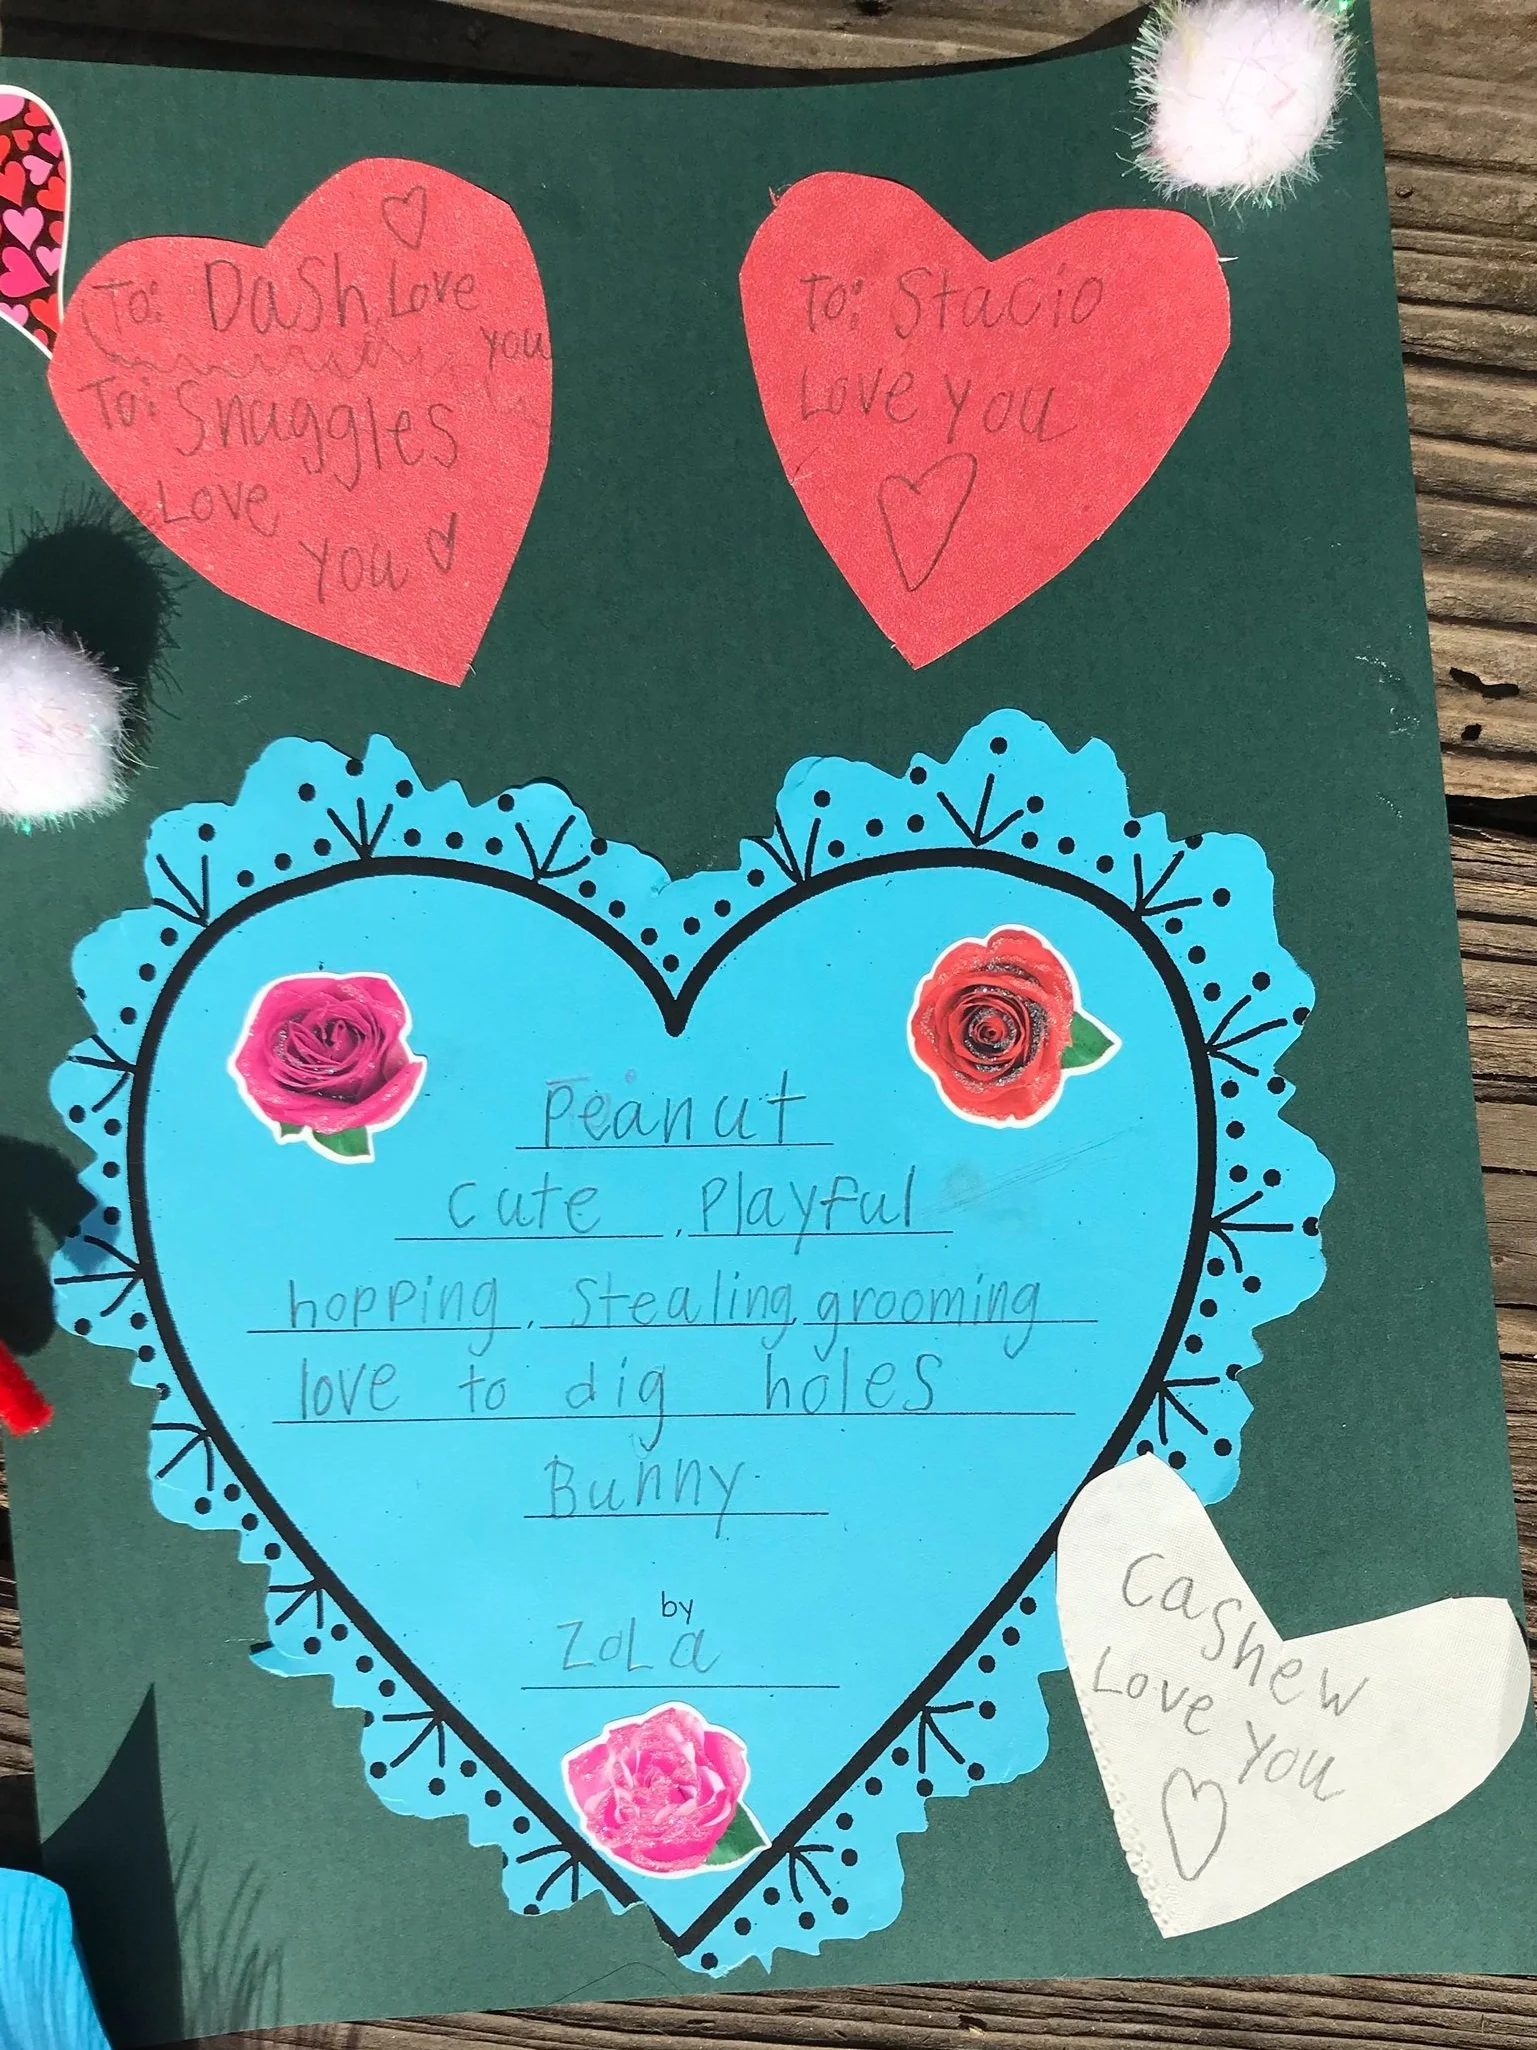 To: Dash Love
you
To: Snuggles
Love
you
To: Stacio
Love you
Peanut
cute, Playful
hopping, stealing, grooming
love to dig holes
Bunny
by
Zola
Cashew
Love
you